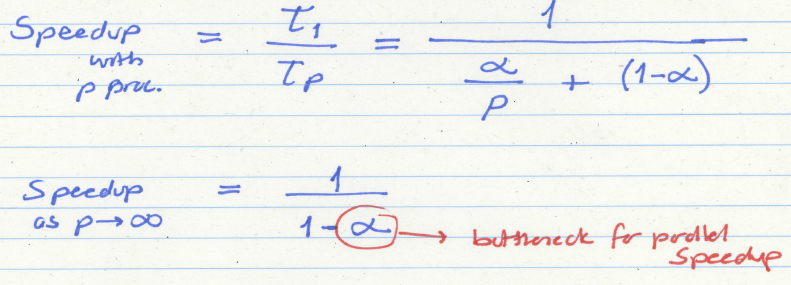 Speedup with p proc. = T₁ / Tₚ = 1 / (α/p + (1-α))
Speedup as p → ∞ = 1 / (1-α) → bottleneck for parallel Speedup